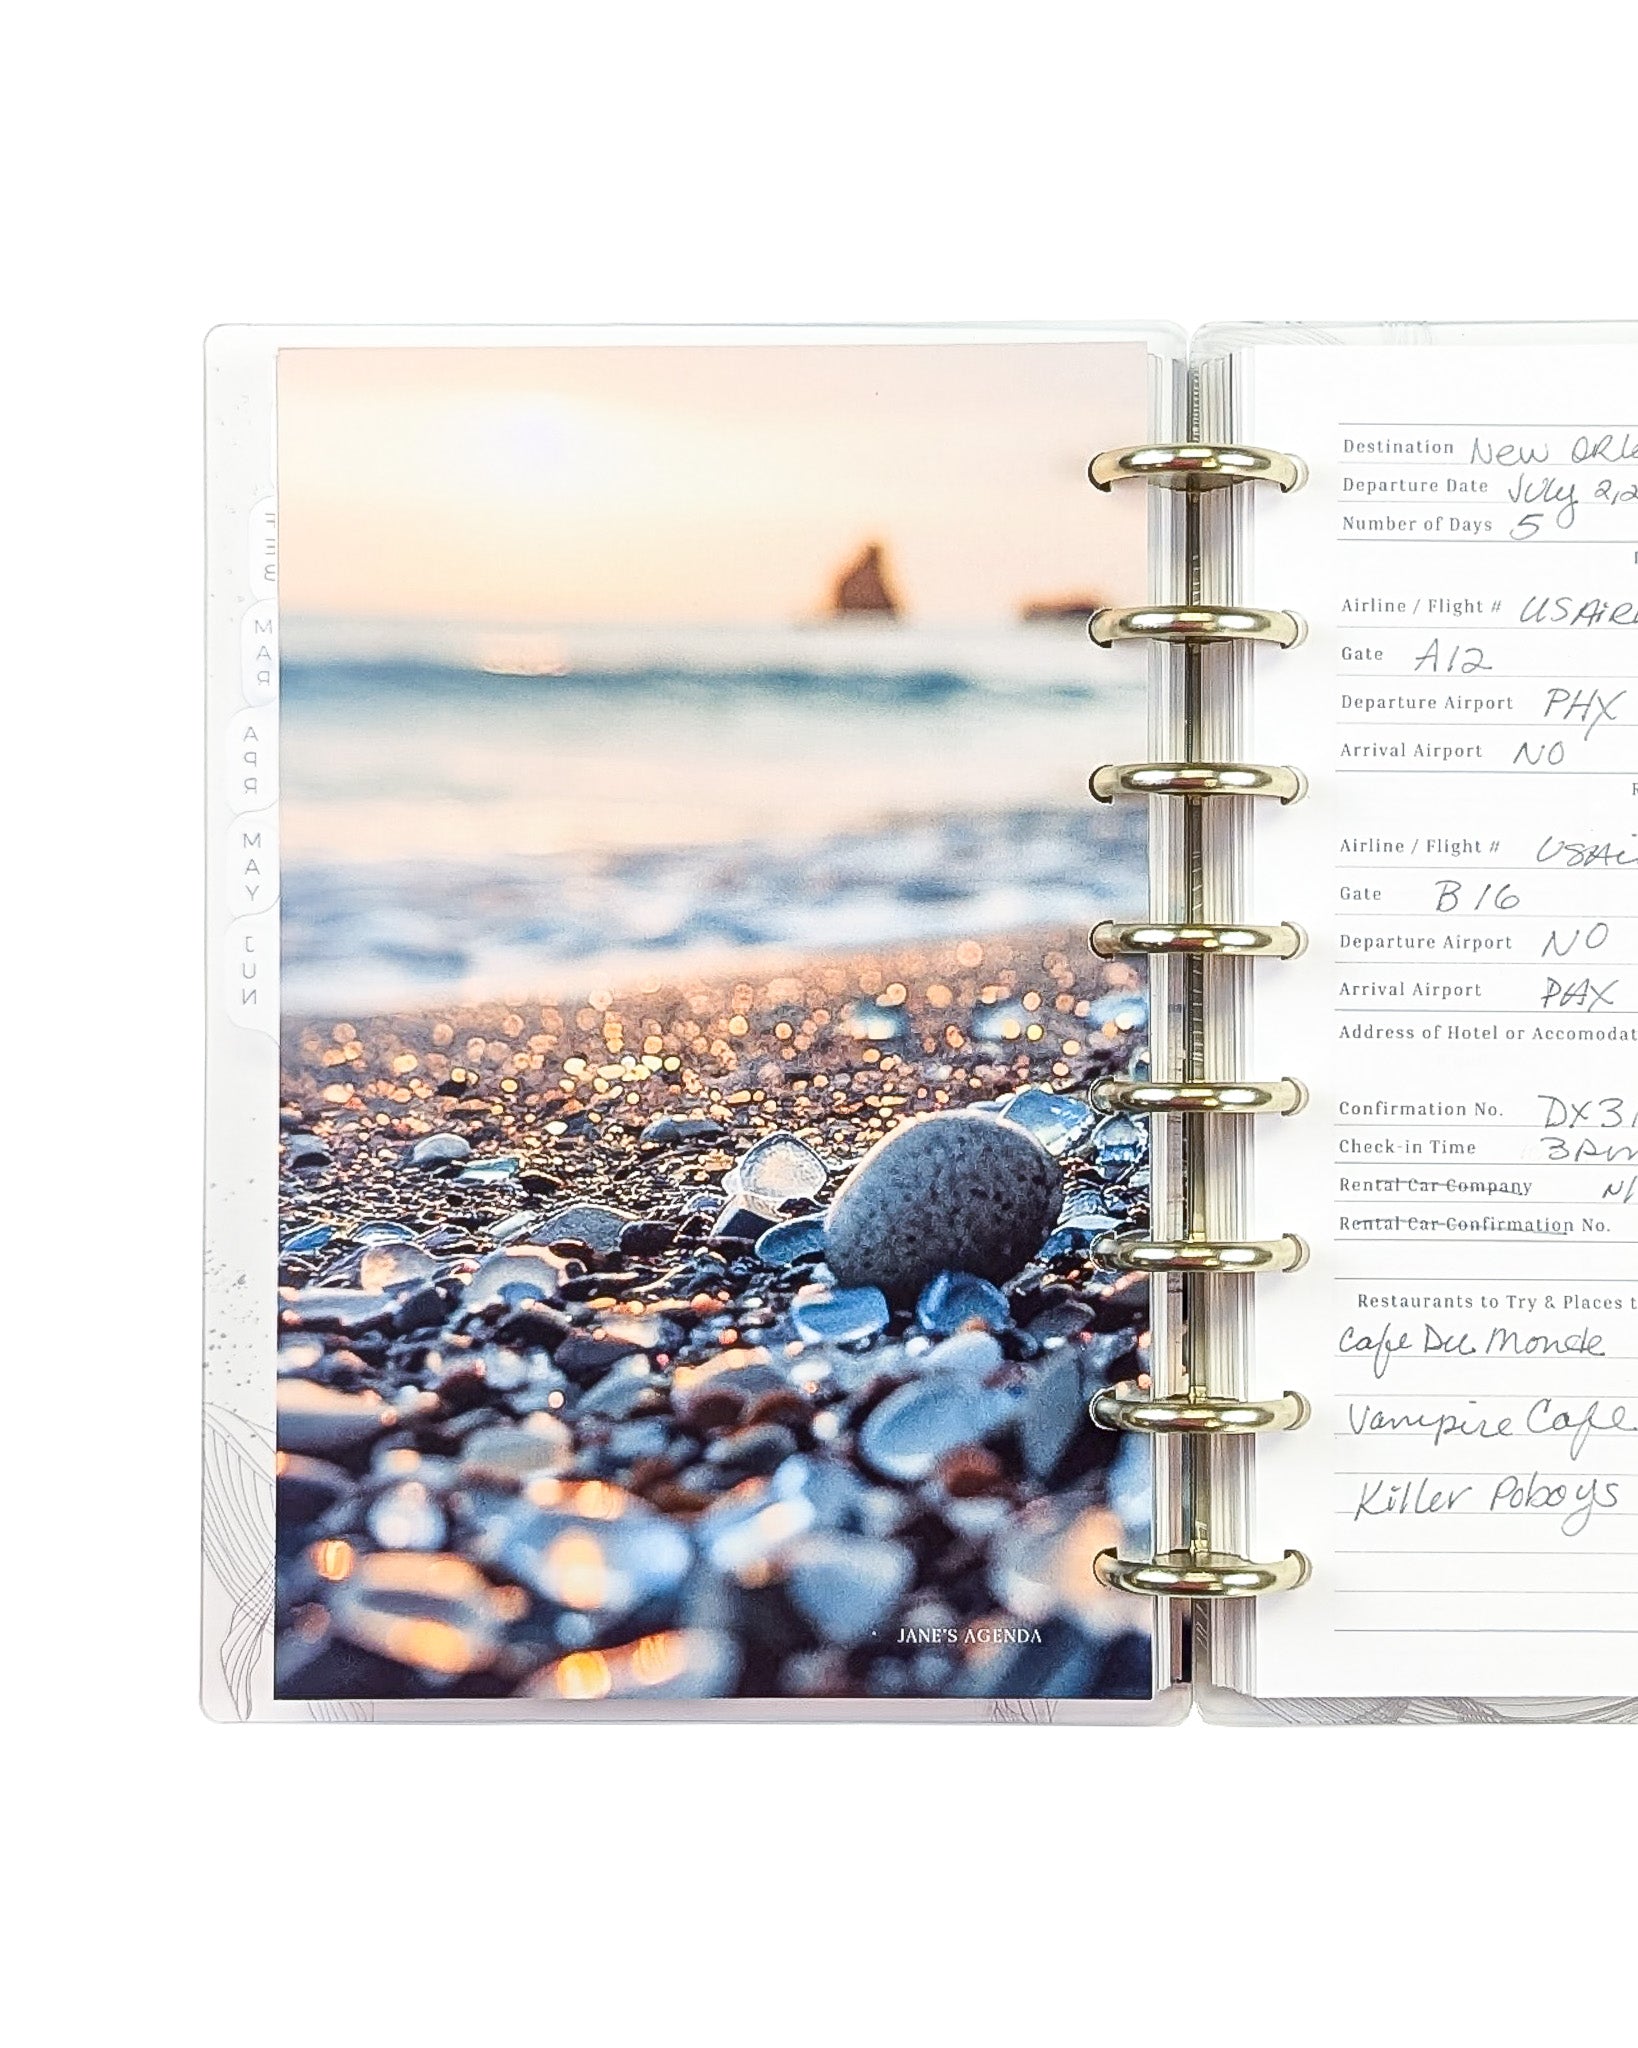 FEB
MAR
APR
MAY
JUN
JANE'S AGENDA
Destination New
Departure Date July 2,
Number of Days 5
Airline / Flight #
Gate A12
Departure Airport PHX
Arrival Airport NO
Airline / Flight #
Gate B 16
Departure Airport NO
Arrival Airport PHX
Address of Hotel or
Confirmation No.
Check-in Time
Rental Car Company
Rental Car Confirmation No.
Restaurants to Try & Places
Cafe Du Monde
Vampire Cafe
Killer Poboys